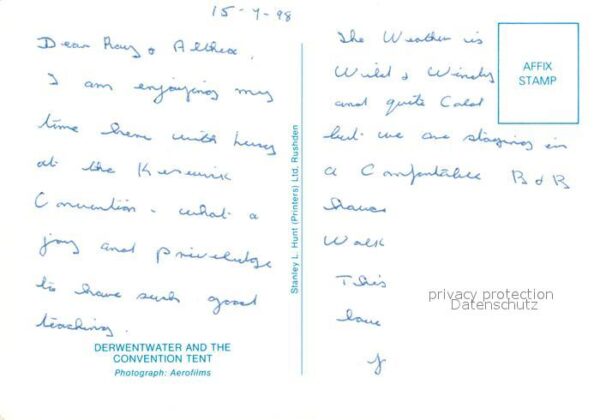 15-7-98
Dear Ray & Althea,
I am enjoying my
time here with
at the Keswick
Convention - what a
joy and priveledge
to have such good
teaching.
DERWENTWATER AND THE
CONVENTION TENT
Photograph: Aerofilms
Stanley L. Hunt (Printers) Ltd. Rushden
The Weather is
Wild & Windy
and quite Cold
but we are staying in
a Comfortable B & B
Walk
This
love
AFFIX
STAMP
privacy protection
Datenschutz